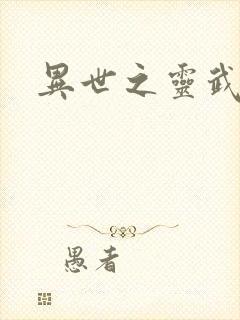 異世之靈武
愚者